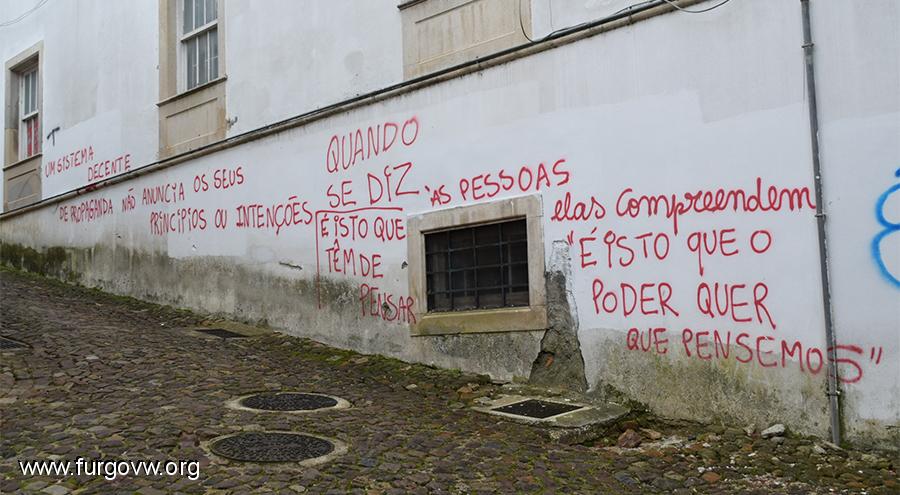 UM SISTEMA
DECENTE
DE PROPAGANDA NÃO ANUNCIA OS SEUS
PRINCIPIOS OU INTENÇÕES
QUANDO
SE DIZ
'AS PESSOAS
É ISTO QUE
TÊM DE
PENSAR
elas compreendem
"É ISTO QUE O
PODER QUER
QUE PENSEMOS"
www.furgovw.org